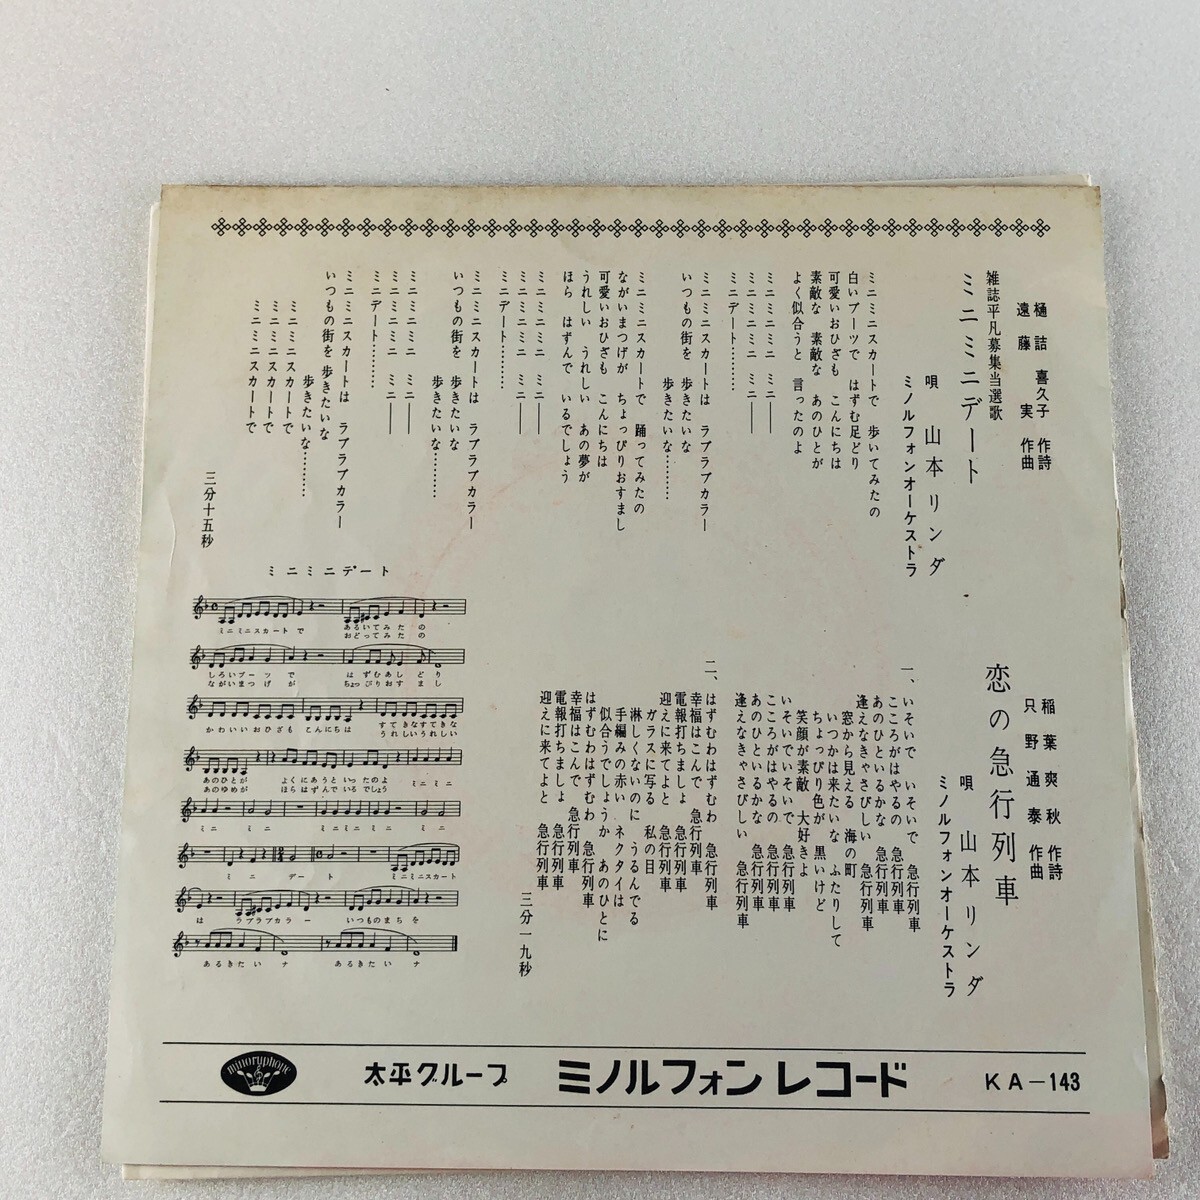 雑誌平凡募集当選歌
ミニミニデート
樋詰 喜久子 作詩
遠藤 実 作曲
唄 山本リンダ
ミノルフォンオーケストラ
ミニミニスカートで 歩いてみたの
白いブーツで はずむ足どり
可愛いおひざも こんにちは
素敵な 素敵な あのひとが
よく似合うと 言ったのよ
ミニミニミニ ミニ――
ミニミニミニ ミニ――
ミニデート………
ミニミニスカートは ラブラブカラー
いつもの街を 歩きたいな
歩きたいな………
ミニミニスカートで 踊ってみたの
ながいまつげが ちょっぴりおすまし
可愛いおひざも こんにちは
うれしい うれしい あの夢が
ほら はずんで いるでしょう
ミニミニミニ ミニ――
ミニミニミニ ミニ――
ミニデート………
ミニミニスカートは ラブラブカラー
いつもの街を 歩きたいな
歩きたいな………
ミニミニミニ ミニ――
ミニミニミニ ミニ――
ミニデート………
ミニミニスカートは ラブラブカラー
いつもの街を 歩きたいな
歩きたいな………
ミニミニスカートで
ミニミニスカートで
ミニミニスカートで
三分十五秒
恋の急行列車
稲葉 爽秋 作詩
只野 通泰 作曲
唄 山本リンダ
ミノルフォンオーケストラ
一、いそいで いそいで 急行列車
こころがはやるの 急行列車
あのひといるかな 急行列車
逢えなきゃさびしい 急行列車
窓から見える 海の町
いつかは来たいな ふたりして
ちょっぴり色が 黒いけど
笑顔が素敵 大好きよ
いそいでいそいで 急行列車
こころがはやるの 急行列車
あのひといるかな 急行列車
逢えなきゃさびしい 急行列車
二、はずむわはずむわ 急行列車
幸福はこんで 急行列車
電報打ちましょ 急行列車
迎えに来てよと 急行列車
ガラスに写る 私の目
淋しくないのに うるんでる
手編みの赤い ネクタイは
似合うでしょうか あのひとに
はずむわはずむわ 急行列車
幸福はこんで 急行列車
電報打ちましょ 急行列車
迎えに来てよと 急行列車
三分一九秒
ミニミニデート
ミニミニスカートで あるいてみたの
おどってみたの
しろいブーツで はずむあしどり
ながいまつげが ちょっぴりおすまし
かわいいおひざも こんにちは すてきなすてきな
うれしいうれしい
あのひとが よくにあうといったのよ ミニミニ
あのゆめが ほらはずんでいるでしょう
ミニ ミニ ミニミニミニ ミニ
ミニ デート ミニミニスカート
は ラブラブカラー いつものまちを
あるきたいナ あるきたいナ
minoruphone
太平グループ ミノルフォンレコード KA-143